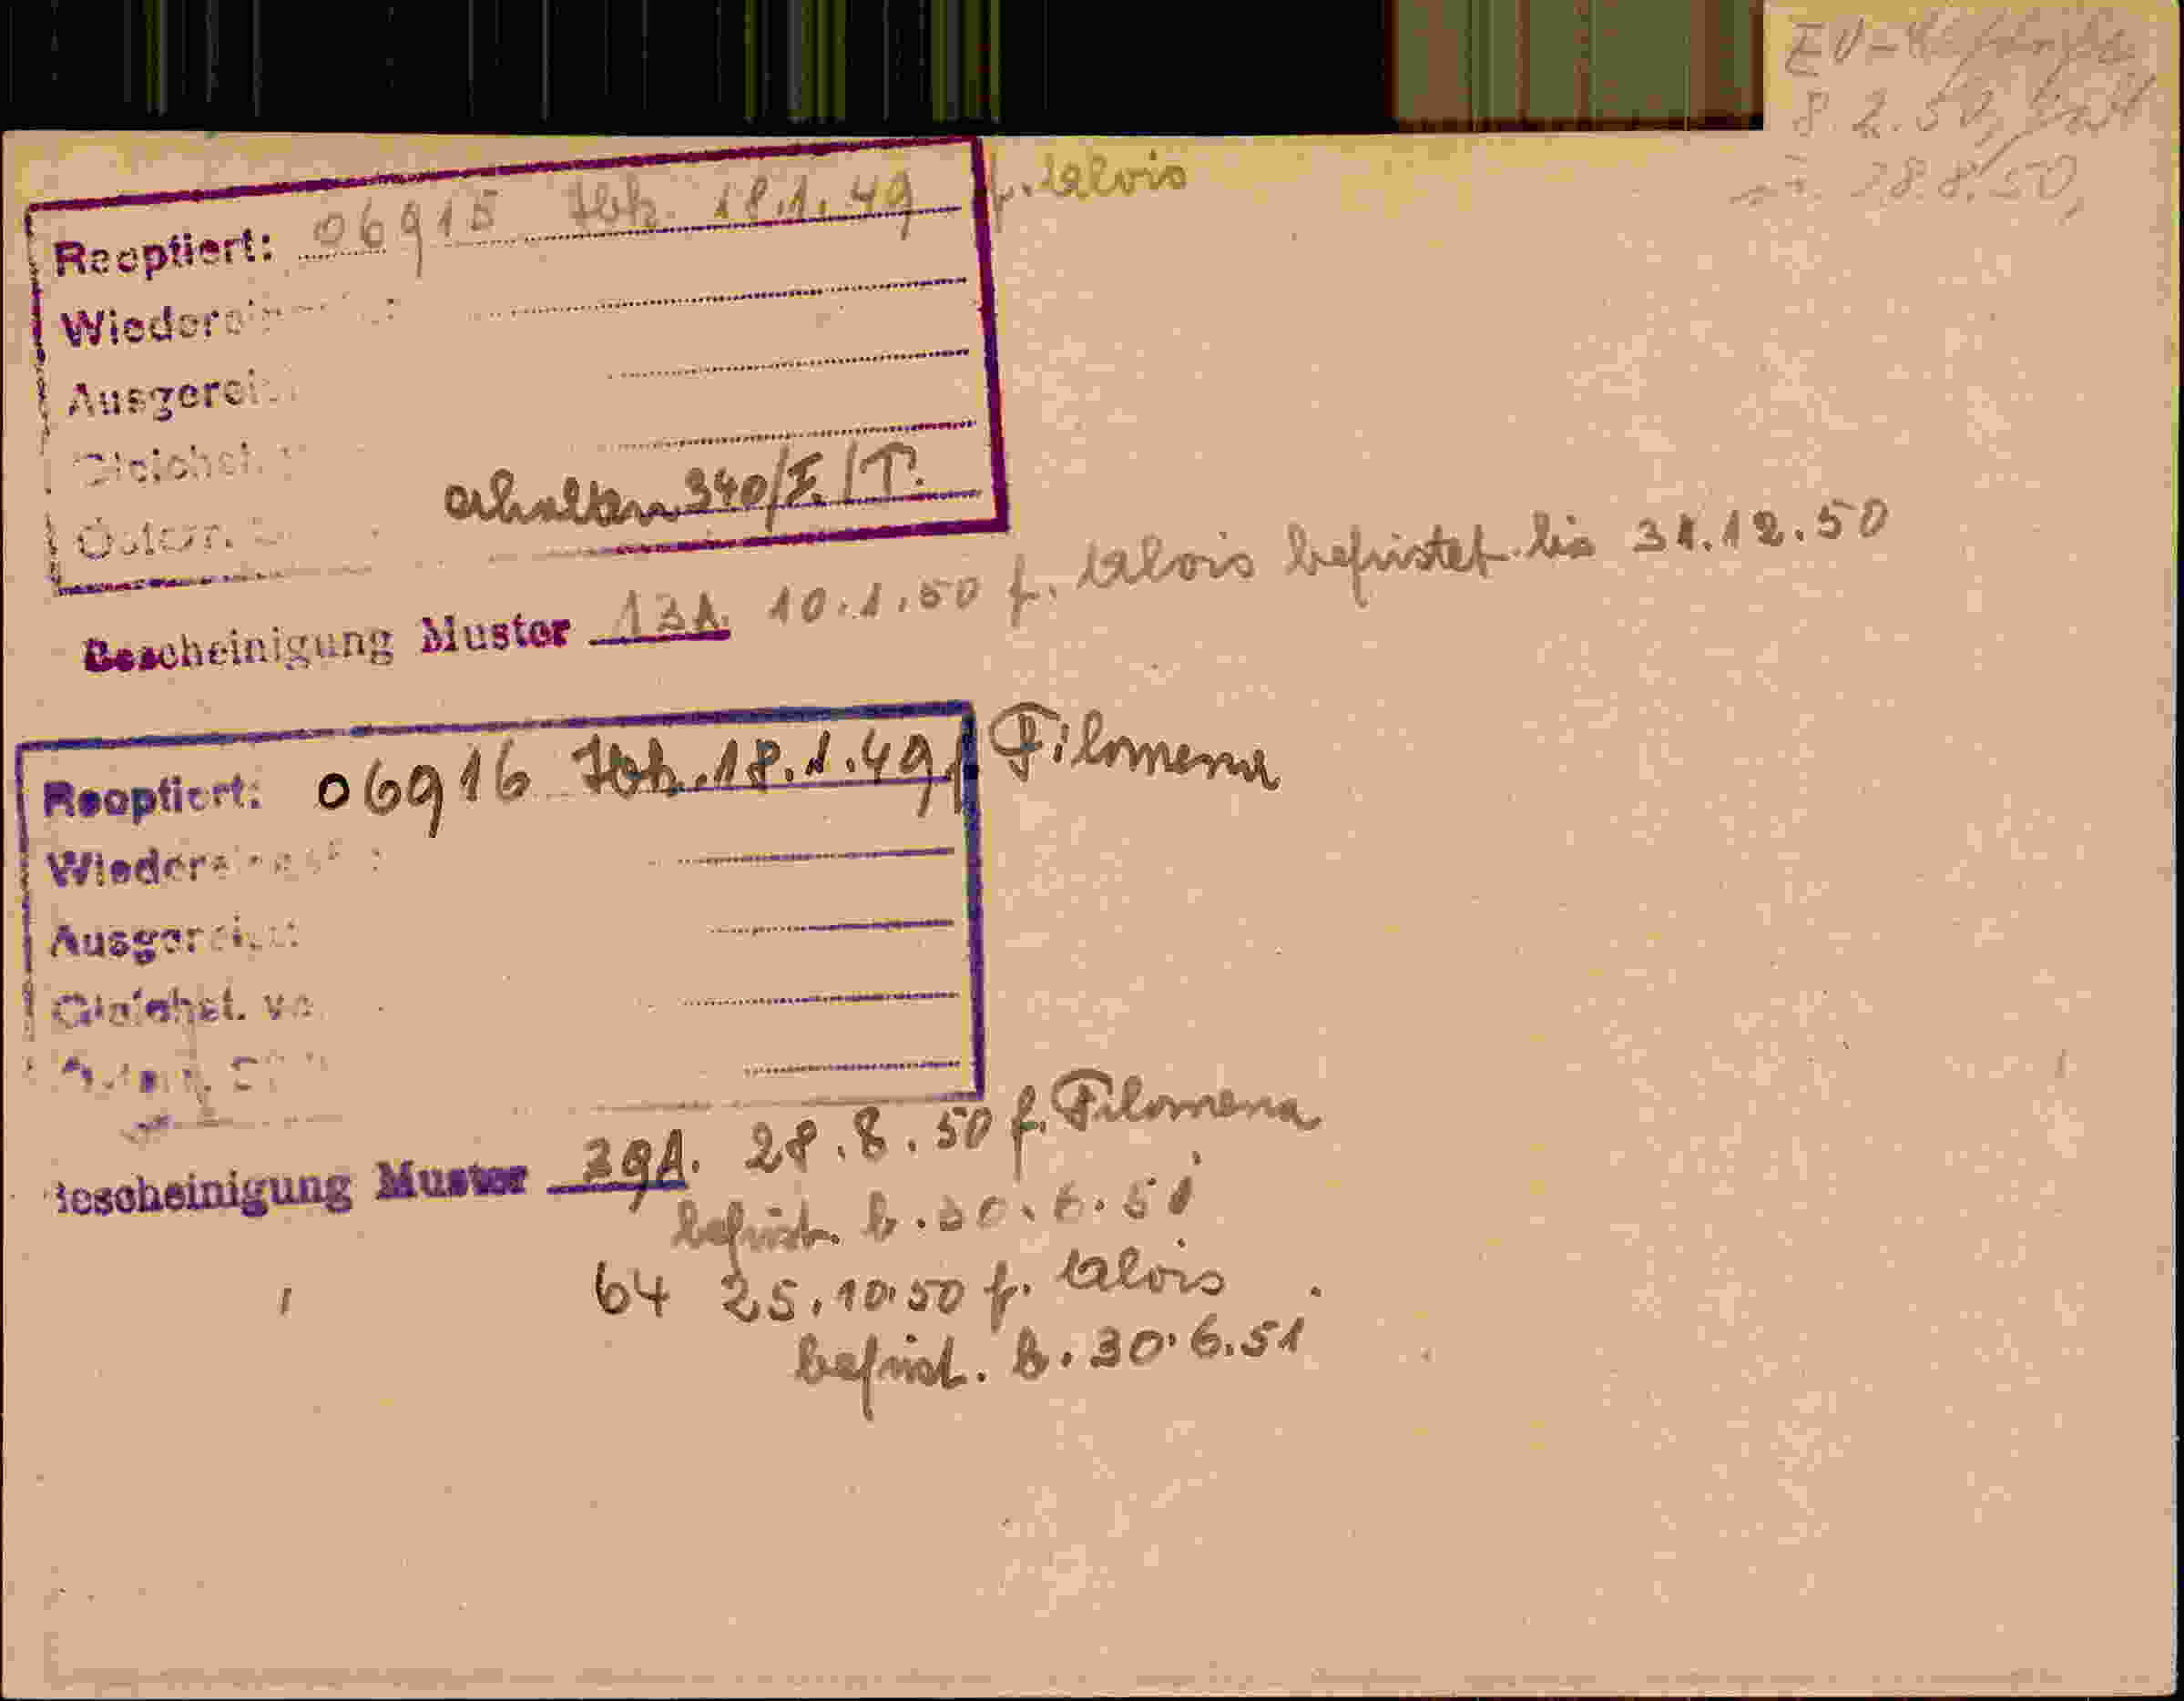 EV-
8.2.50,
28.8.50,
Reoptiert: 06915 Ibk. 18.1.49 f. Alois
Wiederei
Ausgerei
Gleichst.
Österr. erhalten 340/I./T.
Bescheinigung Muster 13A. 10.1.50 f. Alois befristet bis 31.12.50
Reoptiert: 06916 Ibk. 18.1.49 f Filomena
Wiederei
Ausgerei
Gleichst. v
Bescheinigung Muster 39A. 28.8.50 f. Filomena
befrist. b. 30.6.51
64 25.10.50 f. Alois
befrist. b. 30.6.51